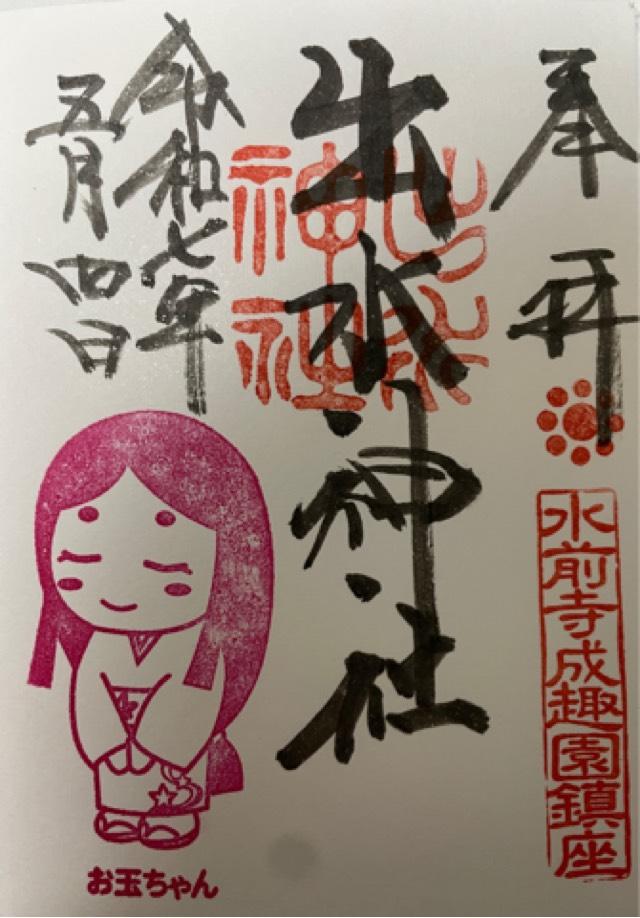 奉拝
水前寺成趣園鎮座
出水神社
出水神社
令和七年
五月四日
お玉ちゃん